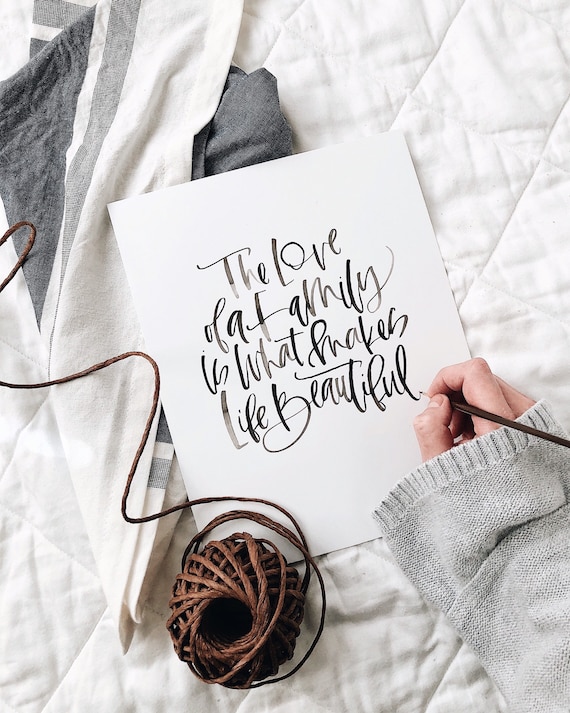 The Love
of a Family
is What Makes
Life Beautiful